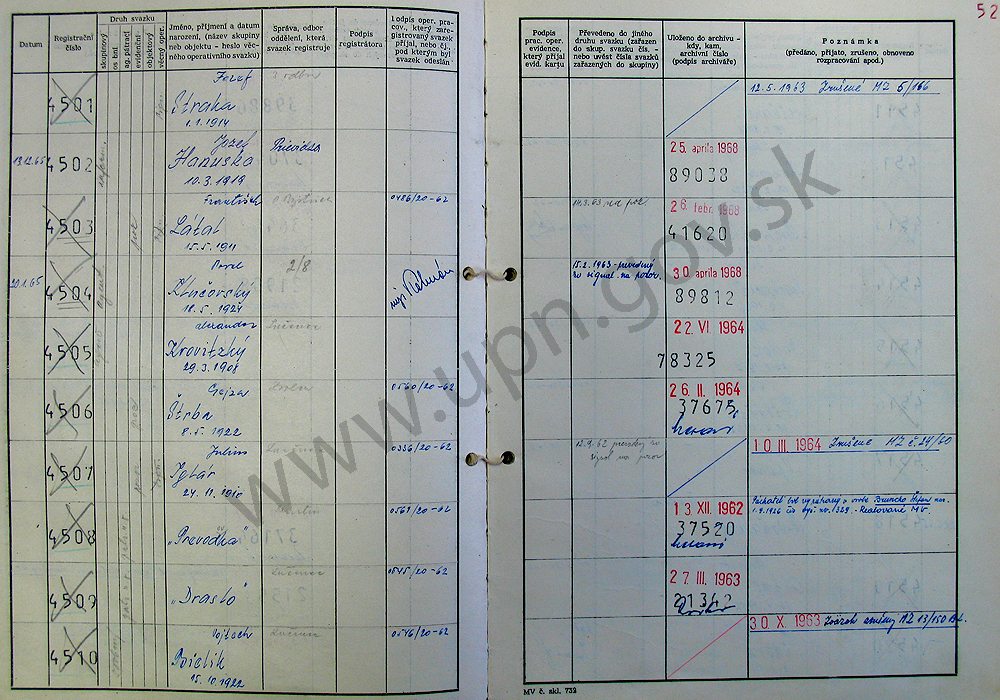 52
Datum
Registrační číslo
Druh svazku
skupinový
osobní
sg. pátrací
evidenční
objektový
věcný oper.
Jméno, příjmení a datum
narození, (název skupiny
neb objektu - heslo věc-
ného operativního svazku)
Správa, odbor
oddělení, která
svazek registruje
Podpis
registrátora
Podpis oper. pra-
cov., který zare-
gistrovaný svazek
přijal, nebo čj.
pod kterým byl
svazek odeslán
Podpis
prac. oper.
evidence,
který přijal
evid. kartu
Převedeno do jiného
druhu svazku (zařazen
do skup. svazku čís. -
nebo uvést čísla svazků
zařazených do skupiny)
Uloženo do archivu -
kdy, kam,
archivní číslo
(podpis archiváře)
Poznámka
(předáno, přijato, zrušeno, obnoveno
rozpracování apod.)
4501
Jozef
Straka
1.1.1914
3 odbor
12.5.1963 Zrušené MZ 6/166
13.12.65
4502
Jozef
Hanuska
10.3.1919
Prievidza
25. apríla 1968
89038
4503
František
Látal
15.5.1911
P. Bystrica
0486/20-62
14.3.63 na poz.
26. febr. 1968
41620
20.1.65
4504
Pavel
Klučovský
18.5.1924
2/8
mjr.
15.2.1963 - prevedený
zo signal. na pozor.
30. apríla 1968
89812
4505
Alexander
Krovitzký
29.3.1908
Lučenec
22. VI. 1964
78325
4506
Gejza
Štrba
8.5.1922
0560/20-62
26. II. 1964
37675
4507
Július
24.11.1910
0336/20-62
12.9.62 prevedený zo
signal na pozor
10. III. 1964 Zrušené MZ č. 24/60
4508
„Prevodka"
Martin
0561/20-62
13. XII. 1962
37520
1.9.1926
4509
„Drasto"
Lučenec
0545/20-62
27. III. 1963
21342
4510
Vojtech
Bielik
15.10.1922
Lučenec
0546/20-62
30. X. 1963 MZ 13/150
MV č. skl. 732
www.upn.gov.sk